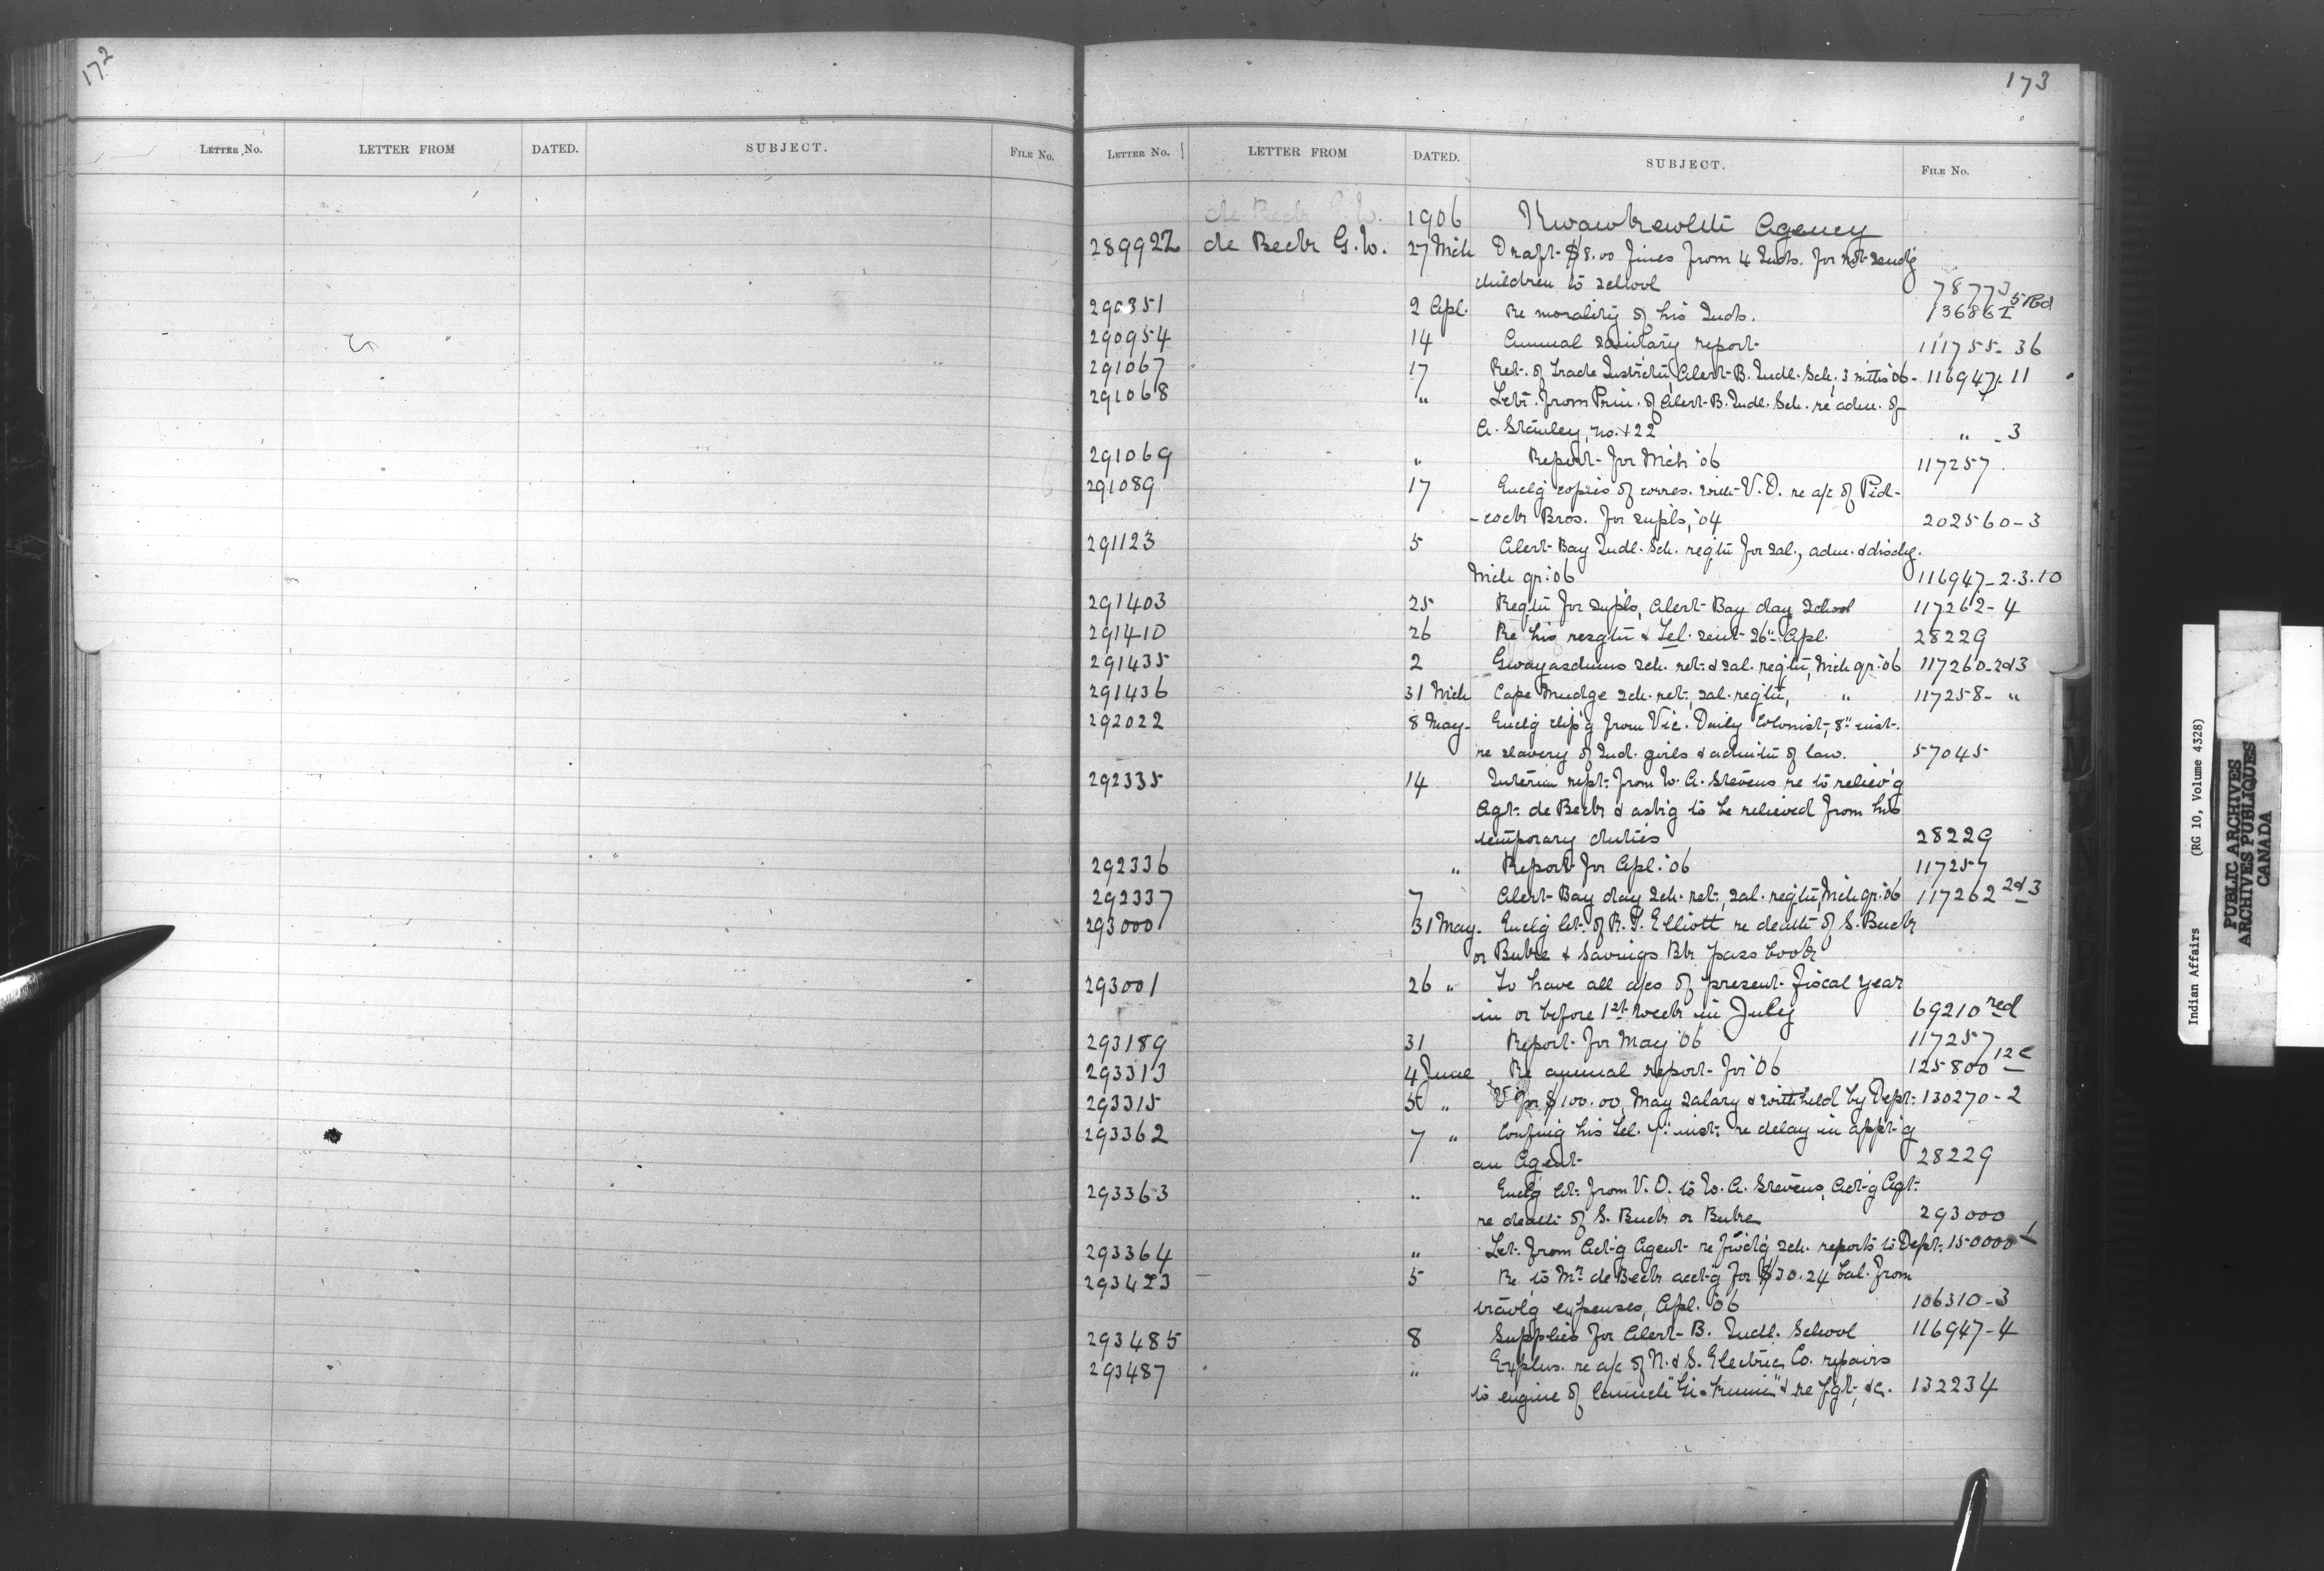 172
LETTER No. LETTER FROM DATED. SUBJECT. FILE No.
173
LETTER No. LETTER FROM DATED. SUBJECT. FILE No.
1906 Kwawkewlth Agency
289922 de Beck G. W. 27 Mch Draft $8.00 fines from 4 Inds. for not send'g
children to school 78773
290351 2 Apl. Re morality of his Inds. 136862
290954 14 Annual sanitary report 111755-36
291067 17 Ret. of Trade Instructn, Alert B. Indl. Sch., 3 mths '06 - 116947-11
291068 " Letr. from Prin. of Alert B. Indl. Sch. re adm. of
A. Stanley, no. 122 " -3
291069 " Report for Mch '06 117257
291089 17 Enclg copies of corres. with V. D. re a/c of Pid-
-cock Bros. for supls, '04 202560-3
291123 5 Alert Bay Indl. Sch. reqtn for sal., adm. & dischg.
Mch qr. '06 116947-2.3.10
291403 25 Reqtn for supls, Alert Bay day school 117262-4
291410 26 Re his resgtn & Tel. sent 26" Apl. 28229
291435 2 Gwayasdums sch. ret. & sal. reqtn, Mch qr. '06 117260-2&3
291436 31 Mch Cape Mudge sch. ret., sal. reqtn, " 117258- "
292022 8 May Enclg clip'g from Vic. Daily Colonist, 8" inst.
re slavery of Ind. girls & admitn of law. 57045
292335 14 Interim rept. from W. A. Stevens re to reliev'g
Agt. de Beck & ask'g to be relieved from his
temporary duties 28229
292336 " Report for Apl. '06 117257
292337 7 Alert Bay day sch. ret., sal. reqtn, Mch qr. '06 117262 2&3
293000 31 May. Enclg let. of R. T. Elliott re death of S. Buck
or Buke & Savings Bk pass book
293001 26 " To have all a/cs of present fiscal year
in or before 1st week in July 69210 red
293189 31 Report for May '06 117257
293313 4 June Re annual report for '06 125800 12c
293315 5 " Vr for $100.00, May salary & withheld by Dept. 130270-2
293362 7 " Confing his tel. 7" inst. re delay in appt'g
an Agent 28229
293363 " Enclg let. from V. D. to W. A. Stevens, Act'g Agt.
re death of S. Buck or Buke 293000
293364 " Let. from Act'g Agent re fwdg sch. reports to Dept. 150000-1
293423 5 Re to Mr. de Beck acct'g for $30.24 bal. from
travlg expenses, Apl. '06 106310-3
293485 8 Supplies for Alert B. Indl. School 116947-4
293487 " Explns. re a/c of N. & S. Electric Co. repairs
to engine of launch "Gi-kumi" & re fgt., &c. 132234
Indian Affairs (RG 10, Volume 4328)
PUBLIC ARCHIVES
ARCHIVES PUBLIQUES
CANADA